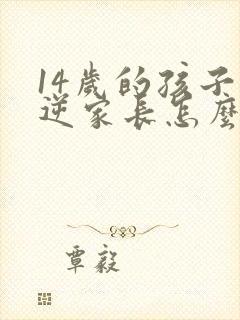 14歲的孩子
逆家長怎麼
覃毅